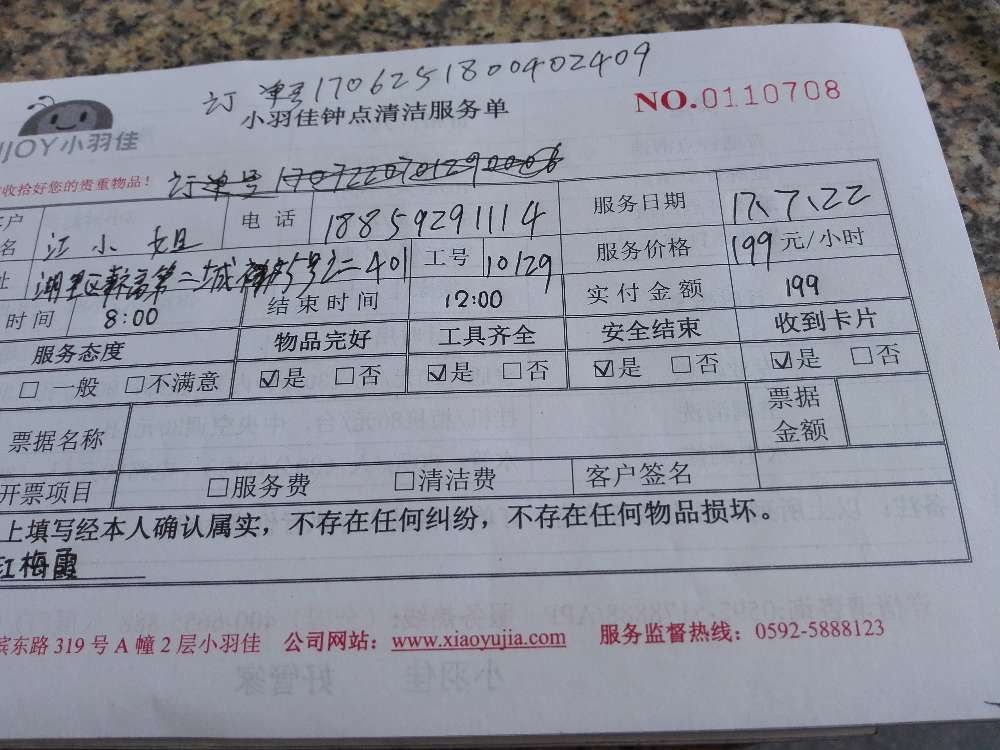 订单号170625180040240​9
NO.0110708
小羽佳钟点清洁服务单
JOY小羽佳
收拾好您的贵重物品！ 订单号
户名 江小姐 电话 18859291114 服务日期 17、7、22
址 湖里区 第二城 5号 401 工号 10129 服务价格 199元/小时
时间 8:00 结束时间 12:00 实付金额 199
服务态度 物品完好 工具齐全 安全结束 收到卡片
□一般 □不满意 ☑是 □否 ☑是 □否 ☑是 □否 ☑是 □否
票据名称 票据金额
开票项目 □服务费 □清洁费 客户签名
上填写经本人确认属实，不存在任何纠纷，不存在任何物品损坏。
江梅霞
滨东路319号A幢2层小羽佳 公司网站：www.xiaoyujia.com 服务监督热线：0592-5888123